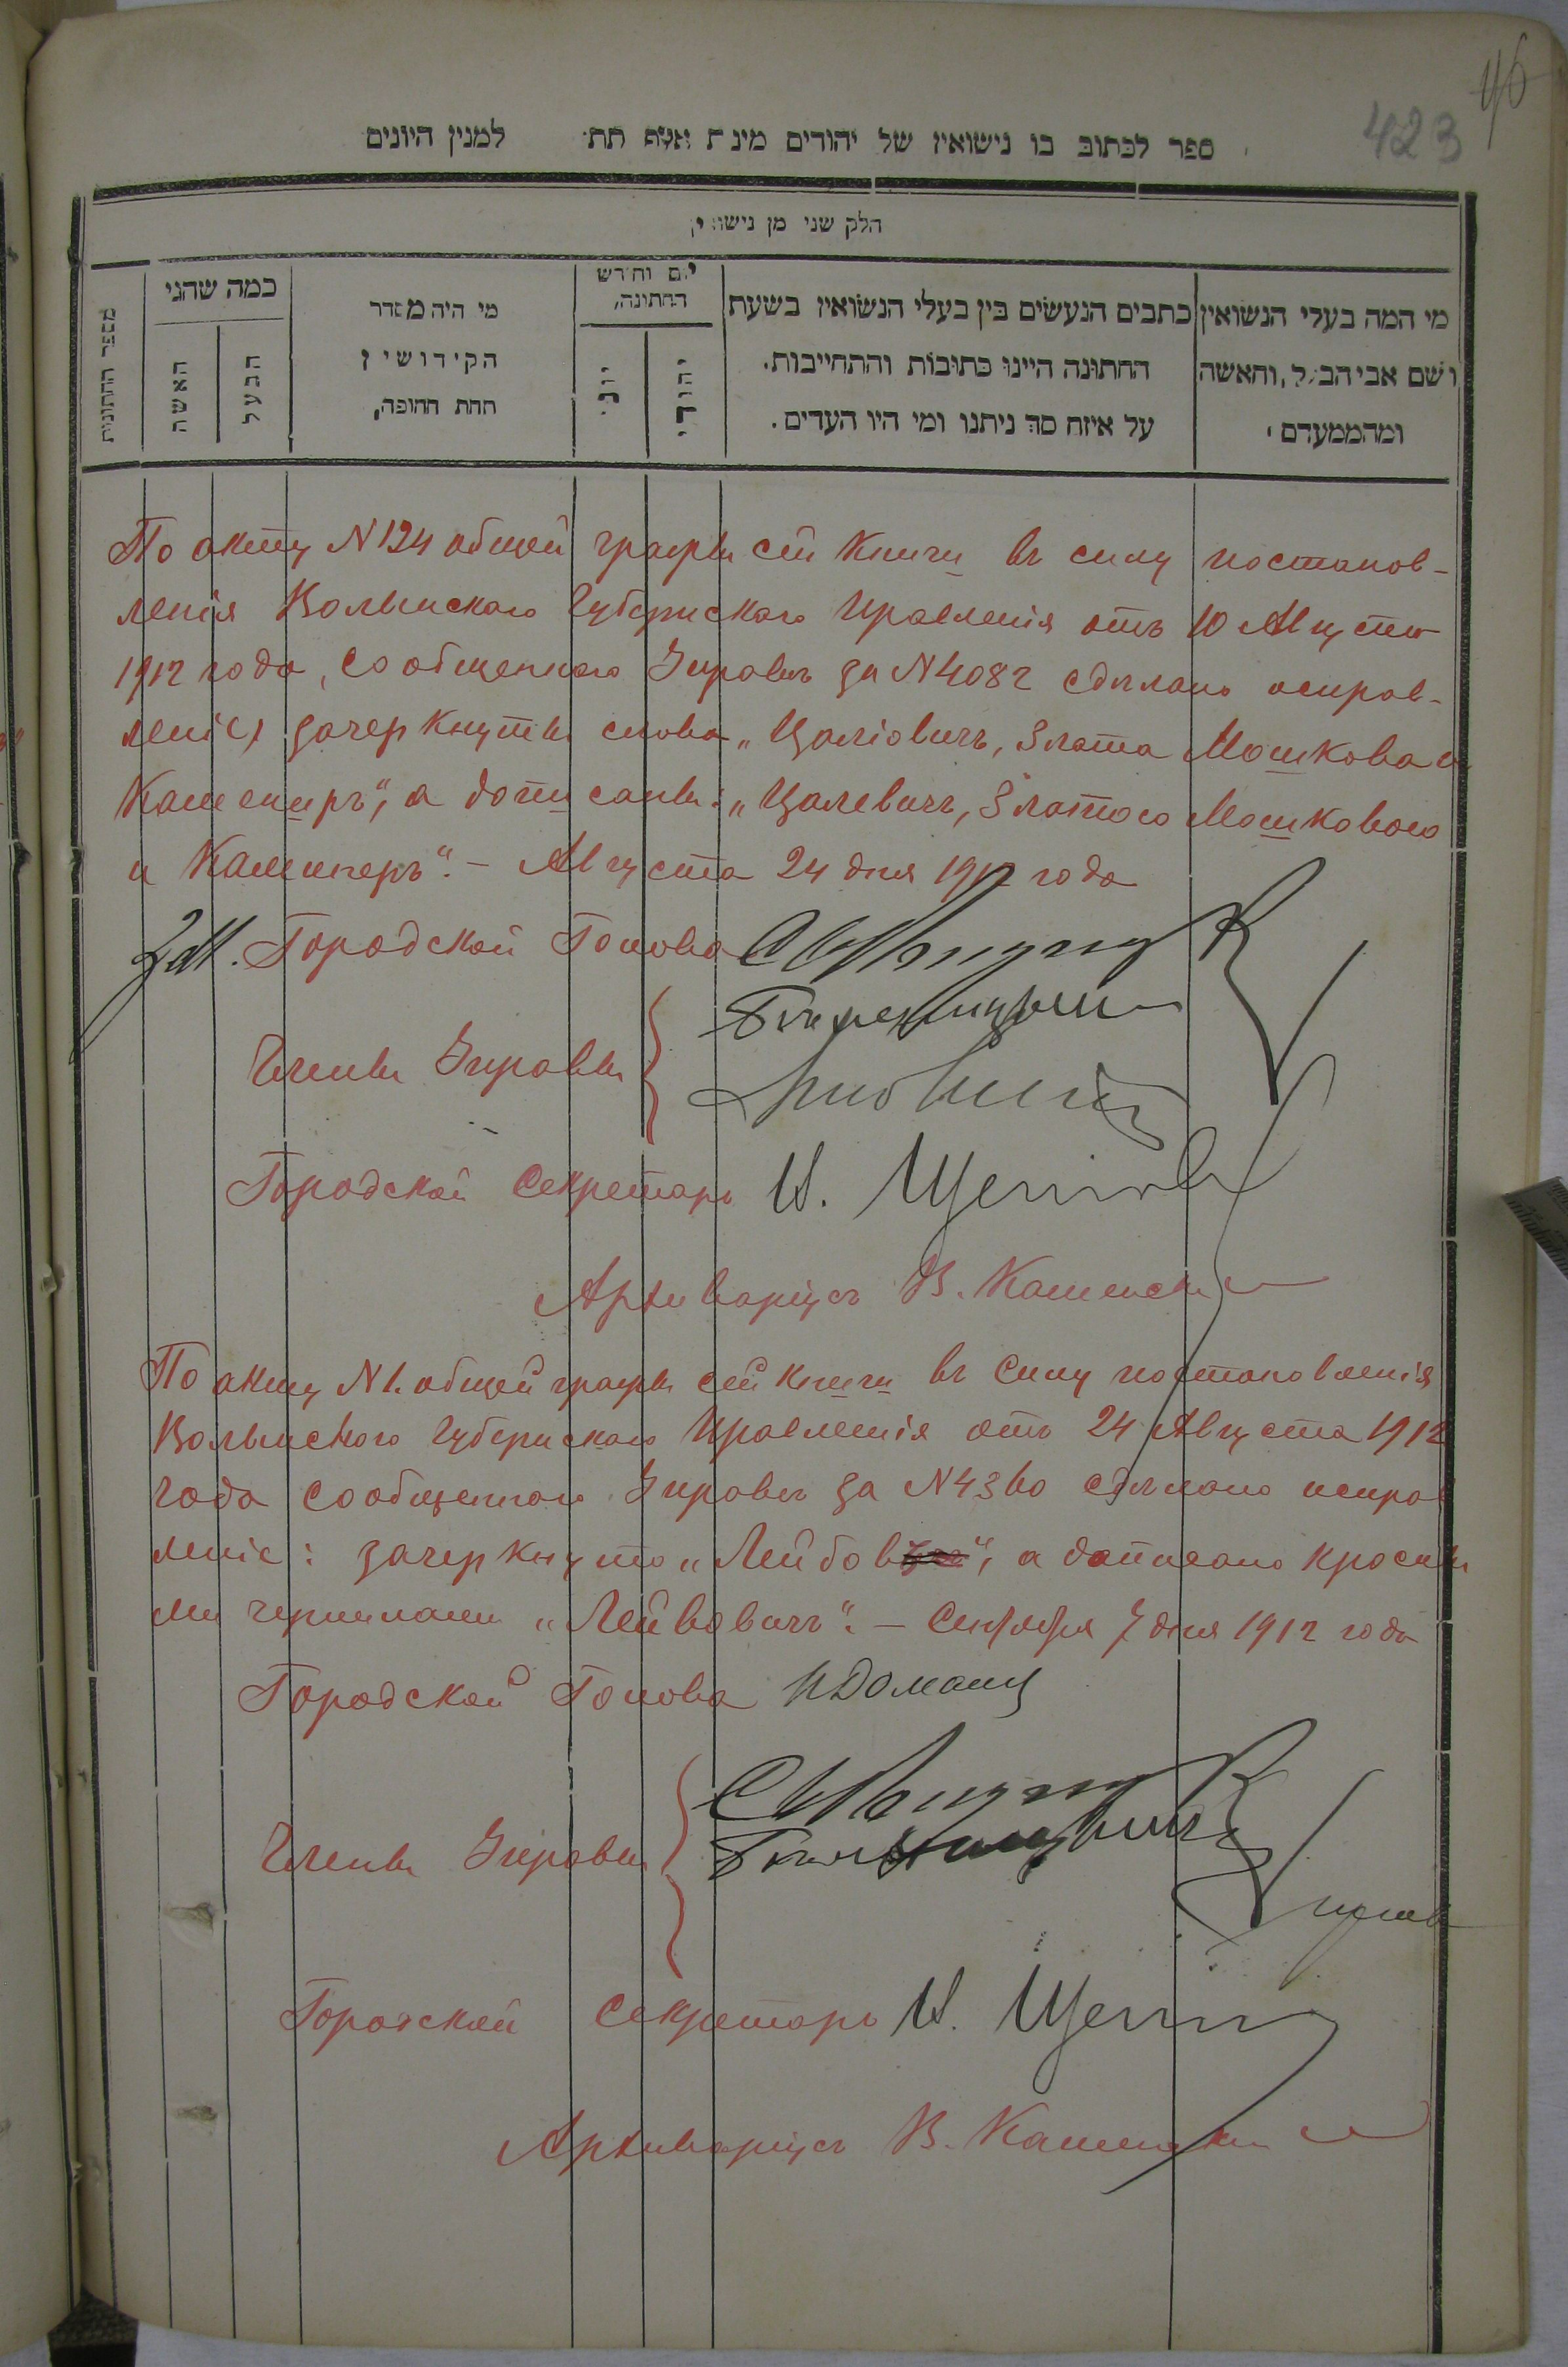 46
423
ספר לכתוב בו נישואין של יהודים מינת אלף תת למנין היונים
חלק שני מן נישואין
מי המה בעלי הנשואין
ושם אבי הבעל, והאשה
ומהממעדם
כתבים הנעשים בין בעלי הנשואין בשעת
החתונה היינו כתובות והתחייבות.
על איזה סך ניתנו ומי היו העדים.
יום וחדש
החתונה,
יהודי
יוני
מי היה מסדר
הקידושין
תחת החופה,
כמה שהני
הבעל
האשה
מספר החתונות
По акту N 124 общей графы сей книги въ силу постанов-
ленія Волынскаго Губернскаго Правленія отъ 10 Августа
1912 года, сообщеннаго Управѣ за N 4082 сдѣлано исправ-
леніе, зачеркнуты слова „Цаліовичъ, Злата Мошкова и
Камениръ“, а дописаны: „Цалевичъ, Златою Мошковою
и Каминеръ“. – Августа 24 дня 1912 года
Городской Голова
Члены Управы
Городской Секретарь И.
Архиваріусъ В. Каменскі
По акту N 1. общей графы сей книги въ силу постановленія
Волынскаго Губернскаго Правленія отъ 24 Августа 1912
года сообщеннаго Управѣ за N 4360 сдѣлано исправ
леніе: зачеркнуто „Лейбов“, а дописано красны
ми чернилами „Лейвовичъ“. – Сентября 7 дня 1912 года
Городской Голова
Члены Управы
Городской Секретарь И.
Архиваріусъ В. Каменскі